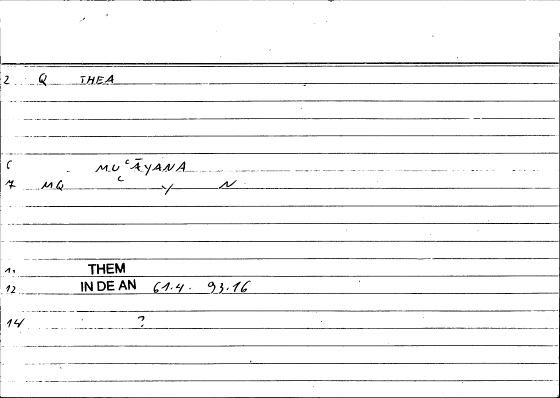 2 Q THEA
6 MUʿĀYANA
7 MQ C Y N
11 THEM
12 IN DE AN 61.4. 93.16
14 ?